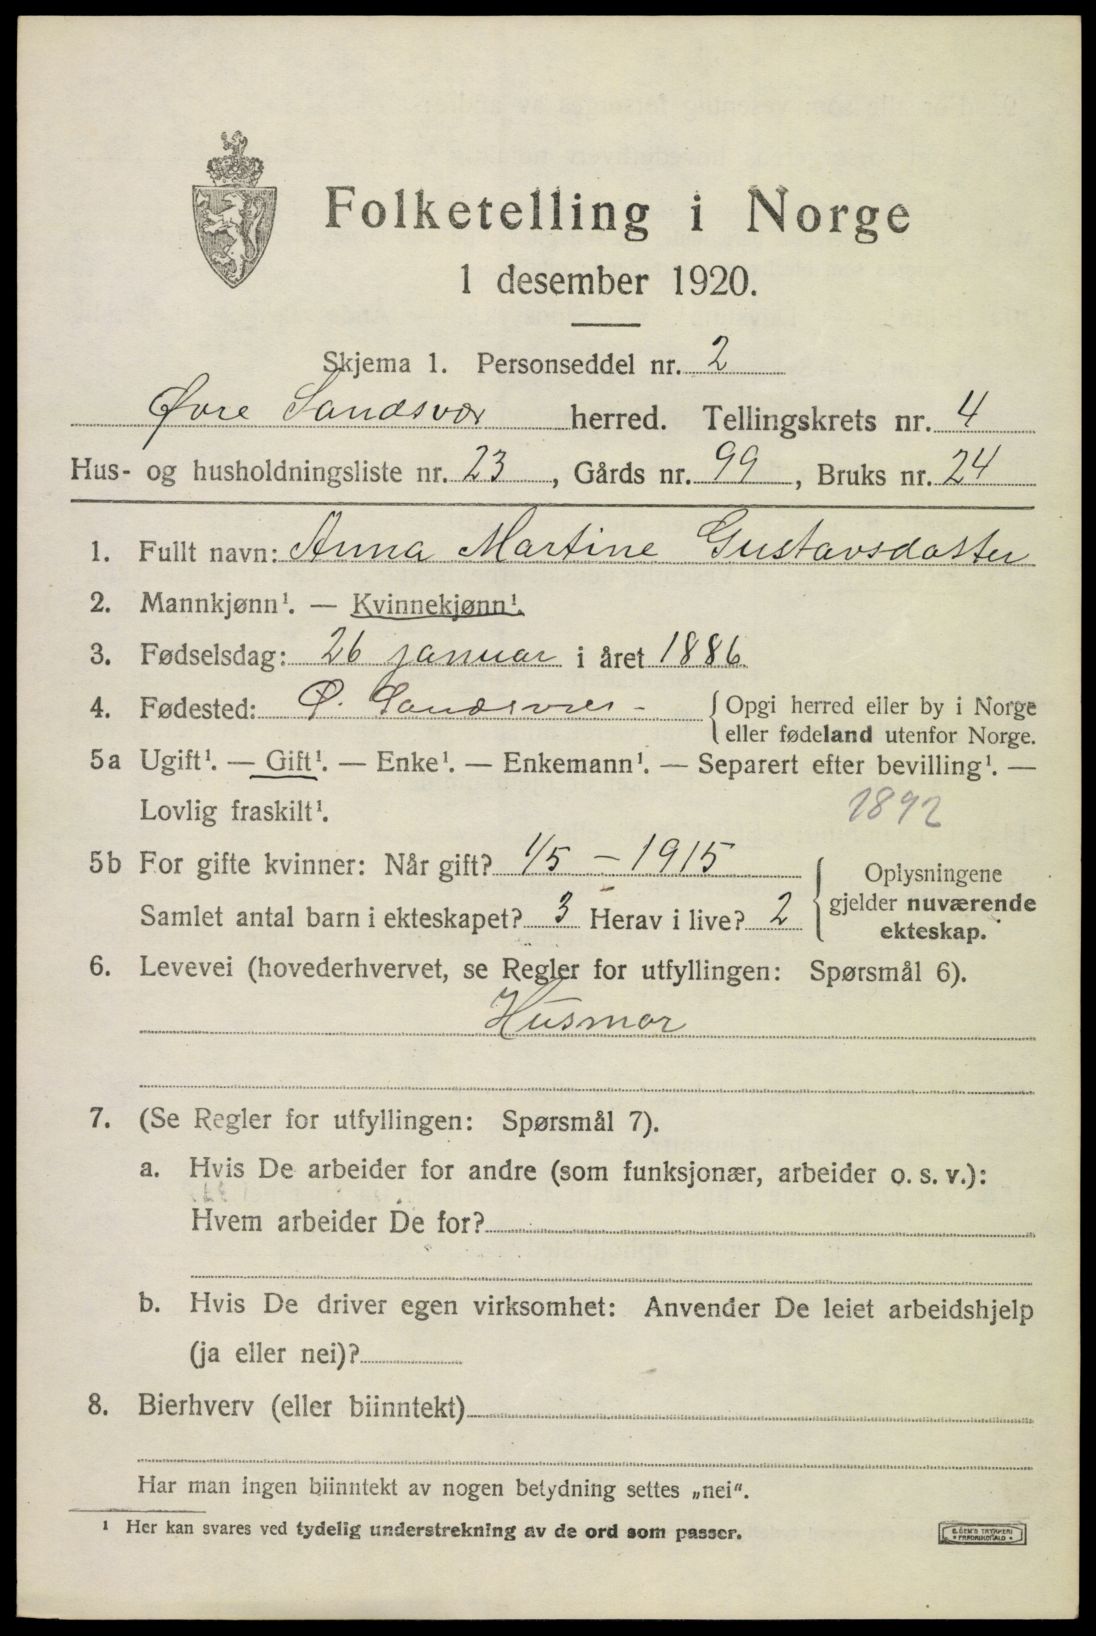 Folketelling i Norge
1 desember 1920.
Skjema 1. Personseddel nr. 2
Øvre Sandsvær herred. Tellingskrets nr. 4
Hus- og husholdningsliste nr. 23, Gårds nr. 99, Bruks nr. 24
1. Fullt navn: Anna Martine Gustavsdatter
2. Mannkjønn¹. — Kvinnekjønn¹.
3. Fødselsdag: 26 januar i året 1886
4. Fødested: Ø. Sandsvær - { Opgi herred eller by i Norge
eller fødeland utenfor Norge.
5a Ugift¹. — Gift¹. — Enke¹. — Enkemann¹. — Separert efter bevilling¹. —
Lovlig fraskilt¹. 1892
5b For gifte kvinner: Når gift? 1/5 — 1915 { Oplysningene
Samlet antal barn i ekteskapet? 3 Herav i live? 2 gjelder nuværende
ekteskap.
6. Levevei (hovederhvervet, se Regler for utfyllingen: Spørsmål 6).
Husmor
7. (Se Regler for utfyllingen: Spørsmål 7).
a. Hvis De arbeider for andre (som funksjonær, arbeider o. s. v.):
Hvem arbeider De for?
b. Hvis De driver egen virksomhet: Anvender De leiet arbeidshjelp
(ja eller nei)?
8. Bierhverv (eller biinntekt)
Har man ingen biinntekt av nogen betydning settes „nei“.
¹ Her kan svares ved tydelig understrekning av de ord som passer.